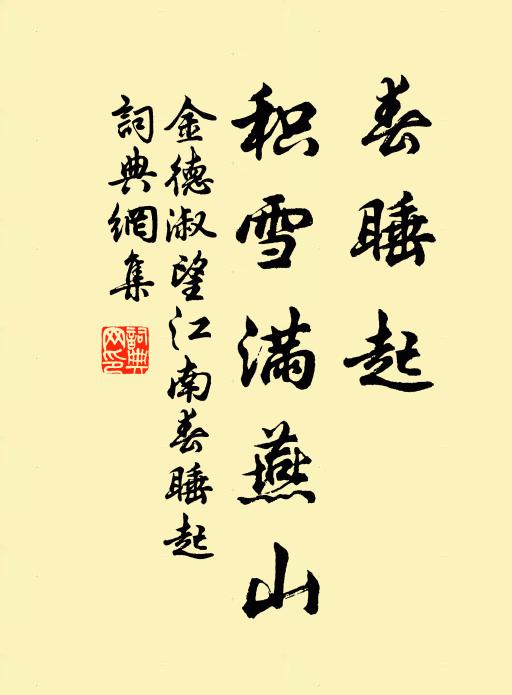 春睡起
积雪满燕山
金德淑望江南春睡起
詞典網集
詞典网印